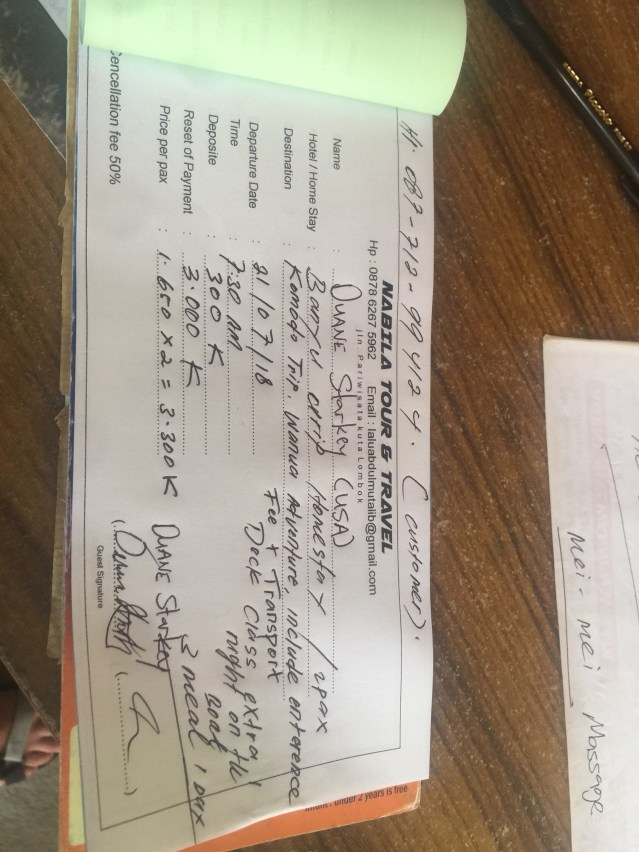 Hp. 087-718-994124. (customer).
NABILA TOUR & TRAVEL
Hp : 0878 6267 5962 Email : laluabdulmutalib@gmail.com
jln. Pariwisata kuta Lombok
Name : DUANE Starkey (USA)
Hotel / Home Stay : Banyu urip Homestay / 2pax
Destination : Komodo Trip. Wanua Adventure, include enterence
Fee + Transport
Departure Date : 21/07/18
Deck Class extra
night on the
boat
Time : 7:30 AM
Deposite : 300 K
3 meal 1 Day
Reset of Payment : 3.000 K
Price per pax : 1.650 x 2 = 3.300 K
DUANE Starkey
Cencellation fee 50%
Guest Signature
under 2 years is free
Mei - mei Massage